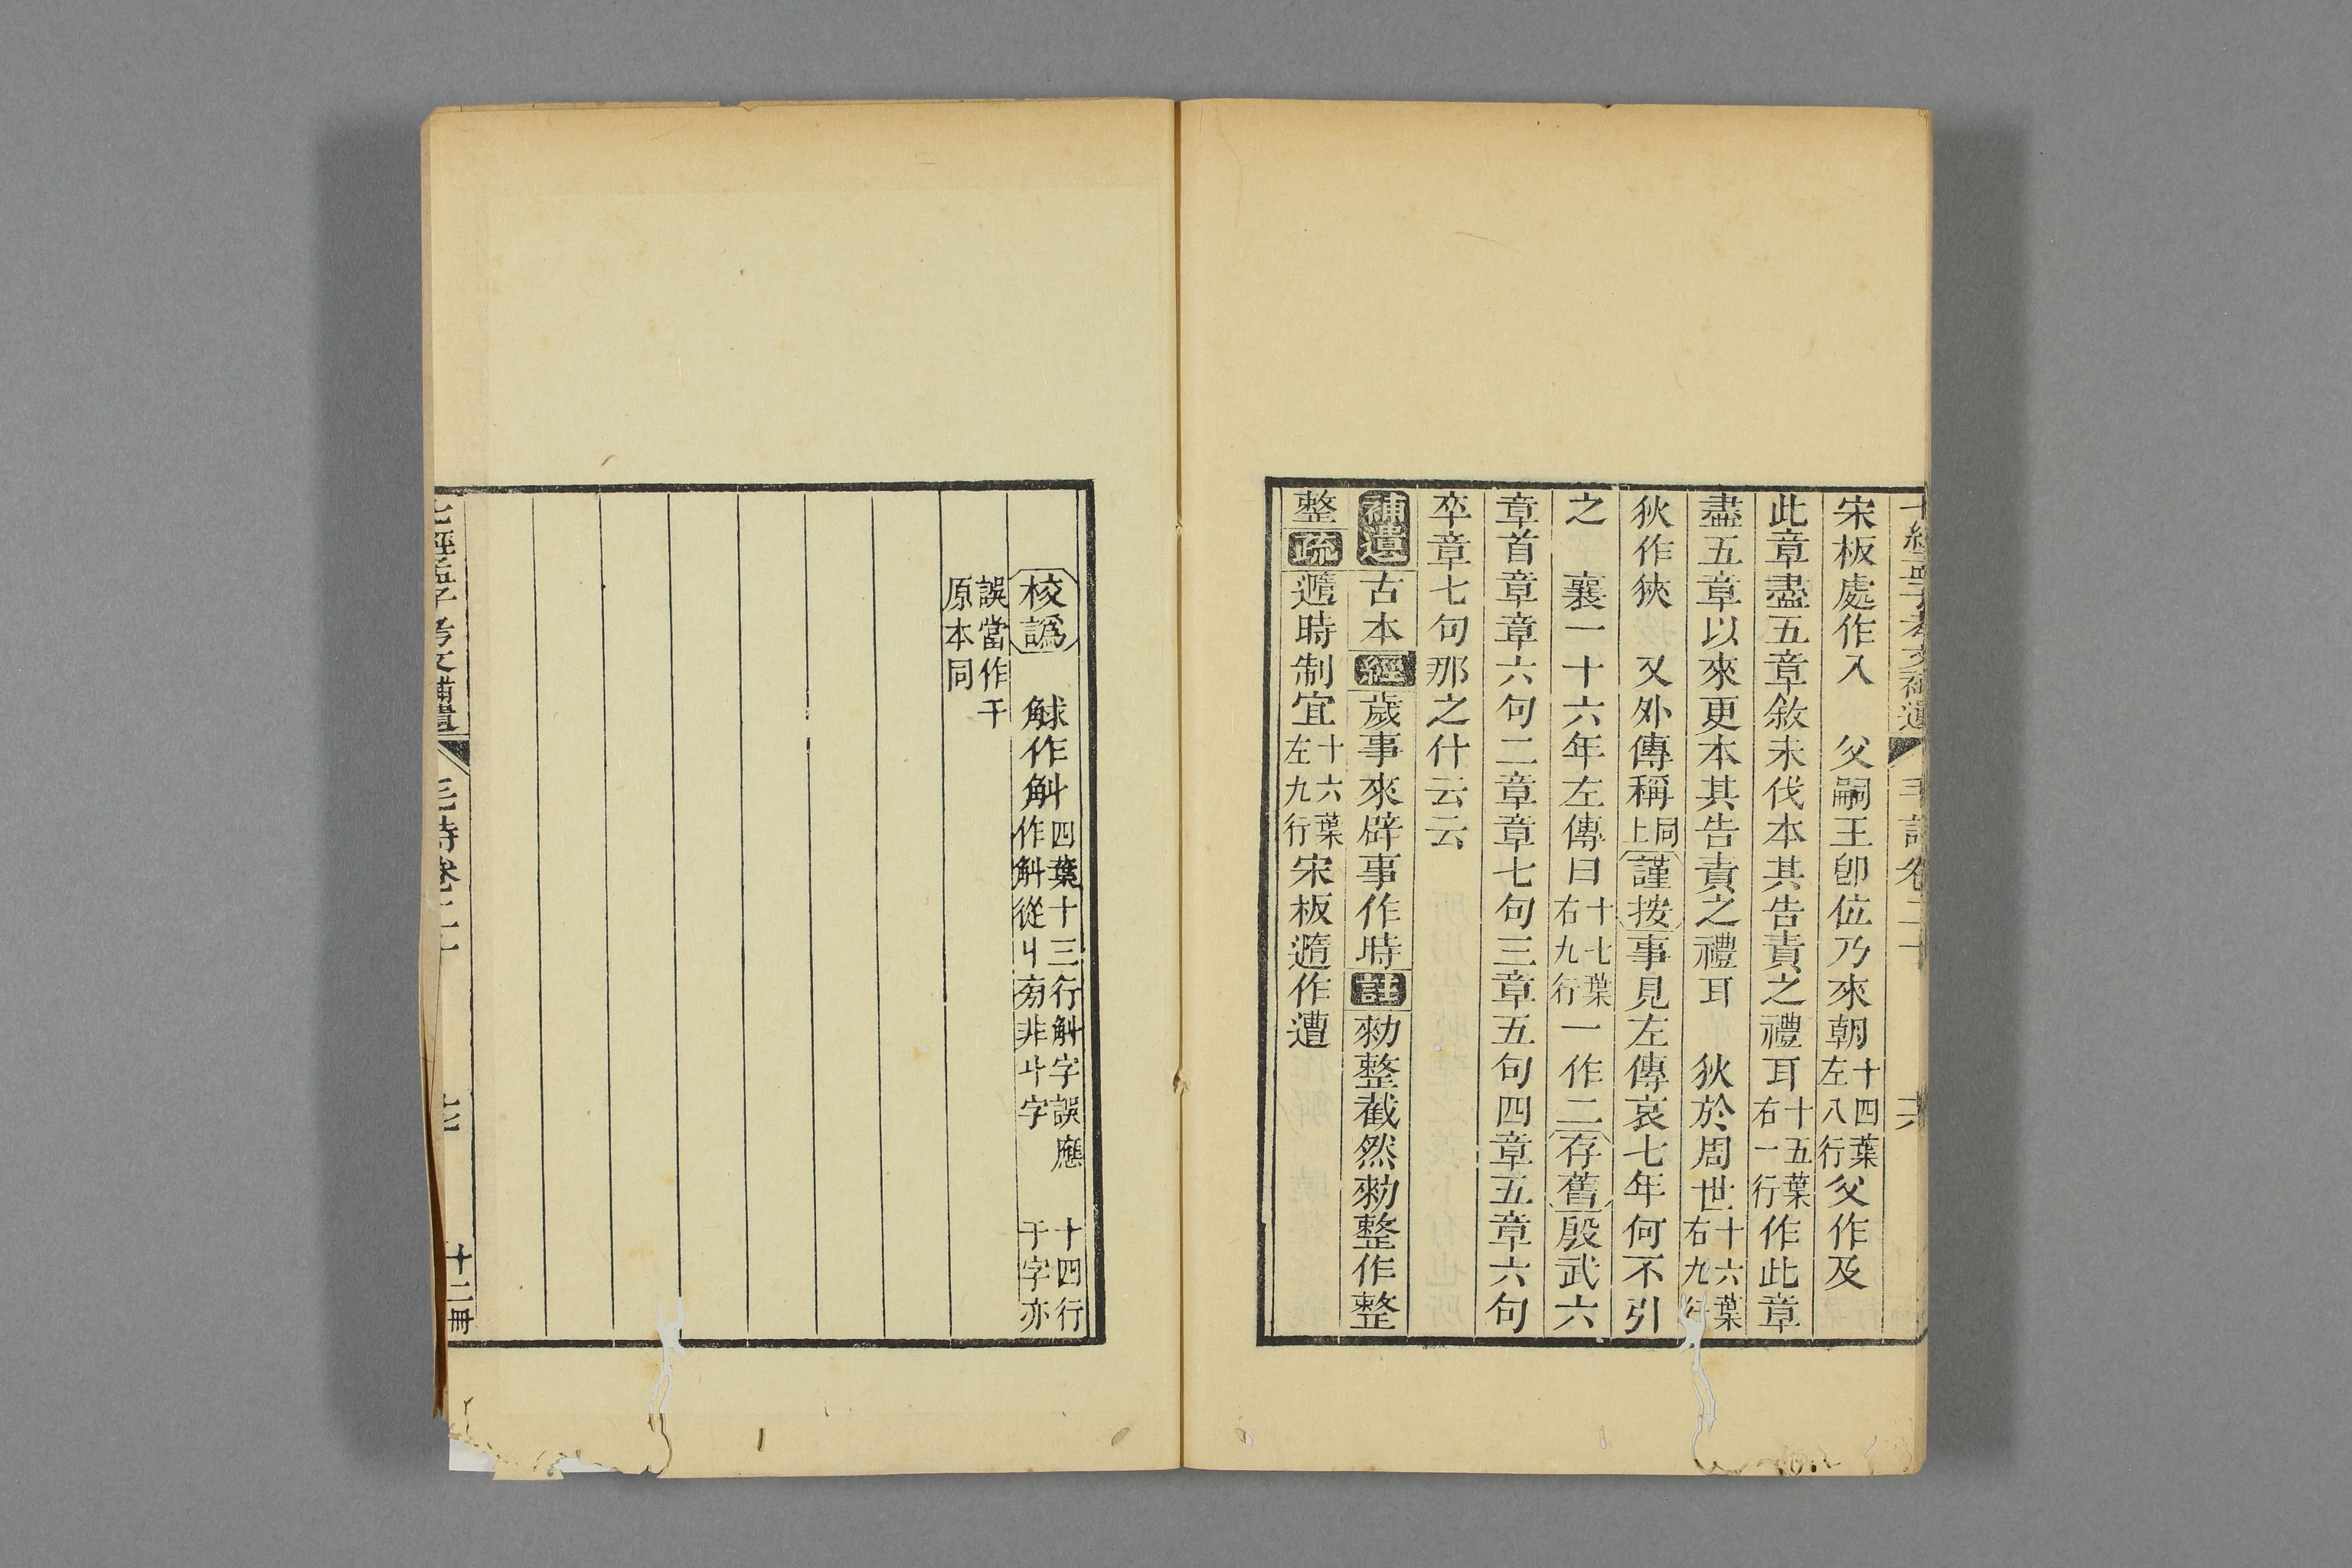 七經孟子考文補遺 毛詩卷二十 六
宋板處作入 父嗣王卽位乃來朝十四葉左八行父作及
此章盡五章敘未伐本其告責之禮耳十五葉右一行作此章
盡五章以來更本其告責之禮耳 狄於周世十六葉右九行
狄作狹 又外傳稱同上謹按事見左傳哀七年何不引
之 襄一十六年左傳曰十七葉右九行一作二存舊殷武六
章首章章六句二章章七句三章五句四章五章六句
卒章七句那之什云云
補遺古本經歲事來辟事作時註勑整截然勑整作整
整疏遁時制宜十六葉左九行宋板遁作遭
校譌 觩作斛十四葉十三行斛字誤應作斛從丩旁非斗字 十四行于字亦
誤當作干原本同
七經孟子考文補遺 毛詩卷二十 七 十二冊